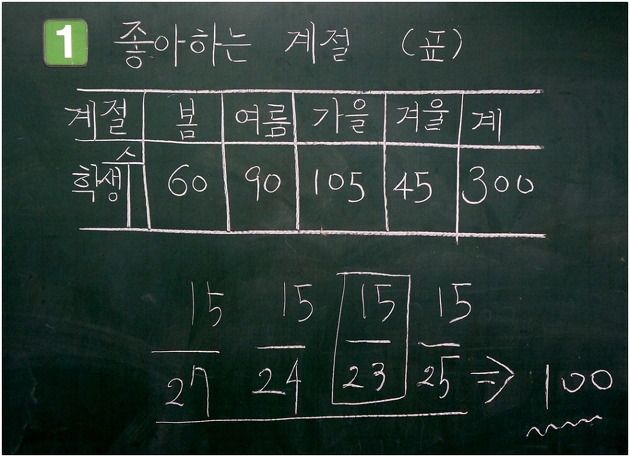 1 좋아하는 계절 (표)
계절 봄 여름 가을 겨울 계
학생수 60 90 105 45 300
15 15 15 15
27 24 23 25 ⇒ 100